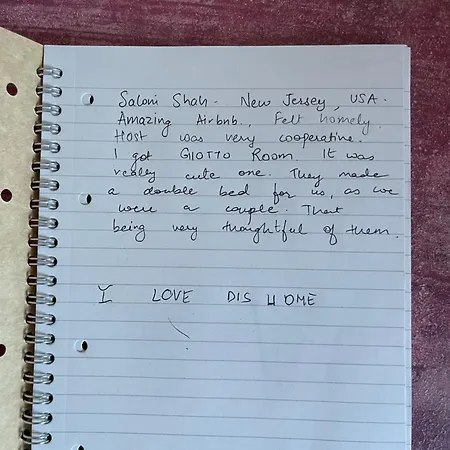 Saloni Shah - New Jersey, USA.
Amazing Airbnb. Felt homely.
Host was very cooperative.
I got GIOTTO ROOM. It was
really cute one. They made
a double bed for us, as we
were a couple. That
being very thoughtful of them.
I LOVE DIS HOME